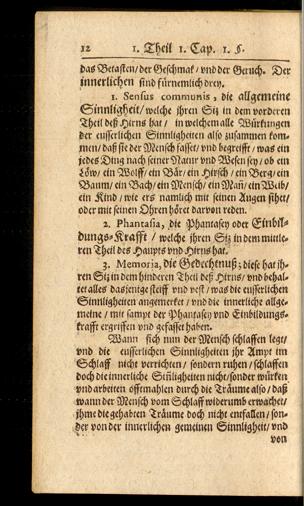 12 1. Theil 1. Cap. 1. §.
das Betasten/ der Geschmak/ vnd der Geruch. Der
innerlichen sind fürnemlich drey.
1. Sensus communis, die allgemeine
Sinnligkeit/ welche ihren Siz in dem vorderen
Theil deß Hirns hat/ in welchem alle Würkungen
der eusserlichen Sinnligkeiten also zusammen kom-
men/ daß sie der Mensch fasset/ vnd begreifft/ was ein
jedes Ding nach seiner Natur vnd Wesen sey/ ob ein
Löw/ ein Wolff/ ein Bär/ ein Hirsch/ ein Berg/ ein
Baum/ ein Bach/ ein Mensch/ ein Mañ/ ein Weib/
ein Kind/ wie ers namlich mit seinen Augen sihet/
oder mit seinen Ohren höret darvon reden.
2. Phantasia, die Phantasey oder Einbil-
dungs-Krafft/ welche ihren Siz in dem mittle-
ren Theil des Haupts vnd Hirns hat.
3. Memoria, die Gedechtnuß; diese hat ih-
ren Siz in dem hinderen Theil deß Hirns/ vnd behal-
tet alles das jenige steiff vnd vest/ was die eusserlichen
Sinnligkeiten angemerket/ vnd die innerliche allge-
meine/ mit sampt der Phantasey vnd Einbildungs-
krafft ergriffen vnd gefasset haben.
Wann sich nun der Mensch schlaffen legt/
vnd die eusserlichen Sinnligkeiten ihr Ampt im
Schlaff nicht verrichten/ sondern ruhen/ schlaffen
doch die innerliche Siñligkeiten nicht/ sonder würken
vnd arbeiten offtmahlen durch die Träume also/ daß
wann der Mensch vom Schlaff widerumb erwachet/
ihme die gehabten Träume doch nicht entfallen/ son-
der von der innerlichen gemeinen Sinnligkeit/ vnd
von